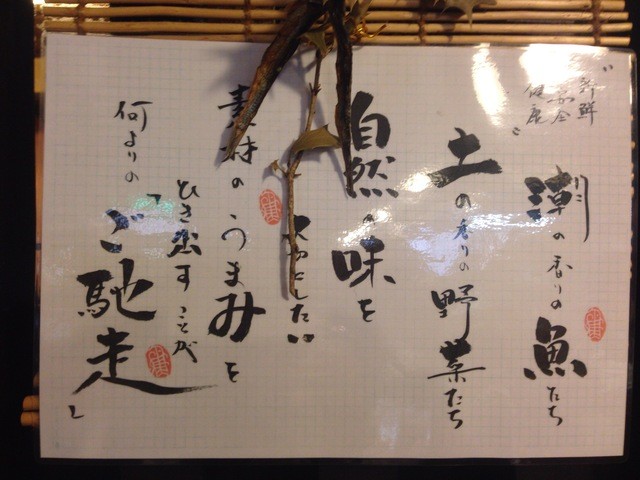 〝新鮮
安全
健康〟
潮の香りの魚たち
土の香りの野菜たち
自然の味を
大切にしたい
素材のうまみを
ひき出すことが
何よりの
「ご馳走」